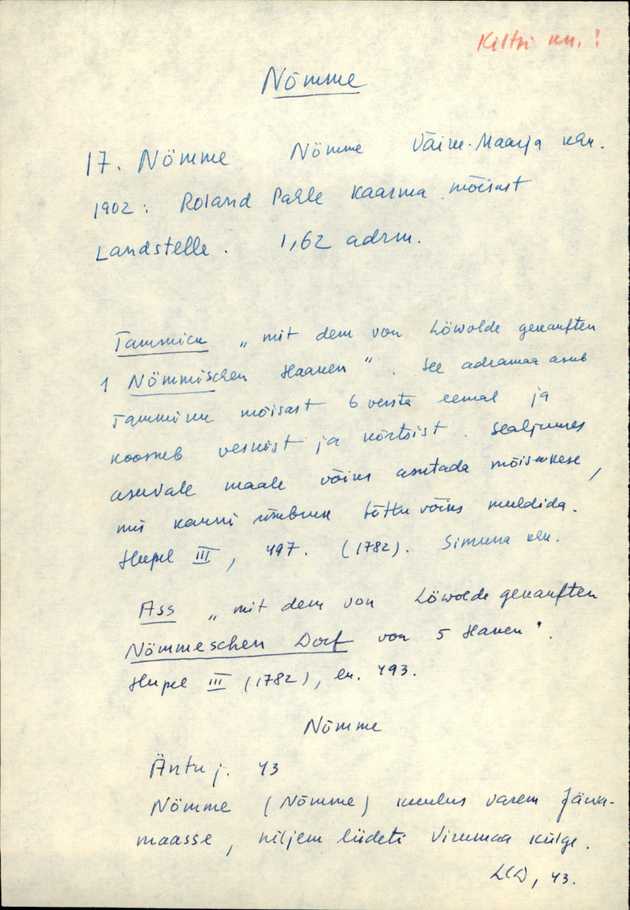 Kiltsi kn.!
Nõmme
17. Nömme Nõmme Väike-Maarja khk.
1902: Roland Pahle Kaarma mõisast
Landstelle. 1,62 adrm.
Tammick „mit dem von Löwolde gekauften
1 Nömmischen Haaken“. See adramaa asub
Tammiku mõisast 6 versta eemal ja
koosneb veskist ja kõrtsist. Sealjuures
asuvale maale võiks asutada mõisakese,
mis kauni ümbruse tõttu võiks
Hupel III, 497. (1782). Simuna khk.
Ass „mit dem von Löwolde gekauften
Nömmeschen Dorf von 5 Haken“.
Hupel III (1782), lk. 493.
Nõmme
Äntu j. 43
Nömme (Nõmme) kuulus varem Järva-
maasse, hiljem liideti Virumaa külge.
43.